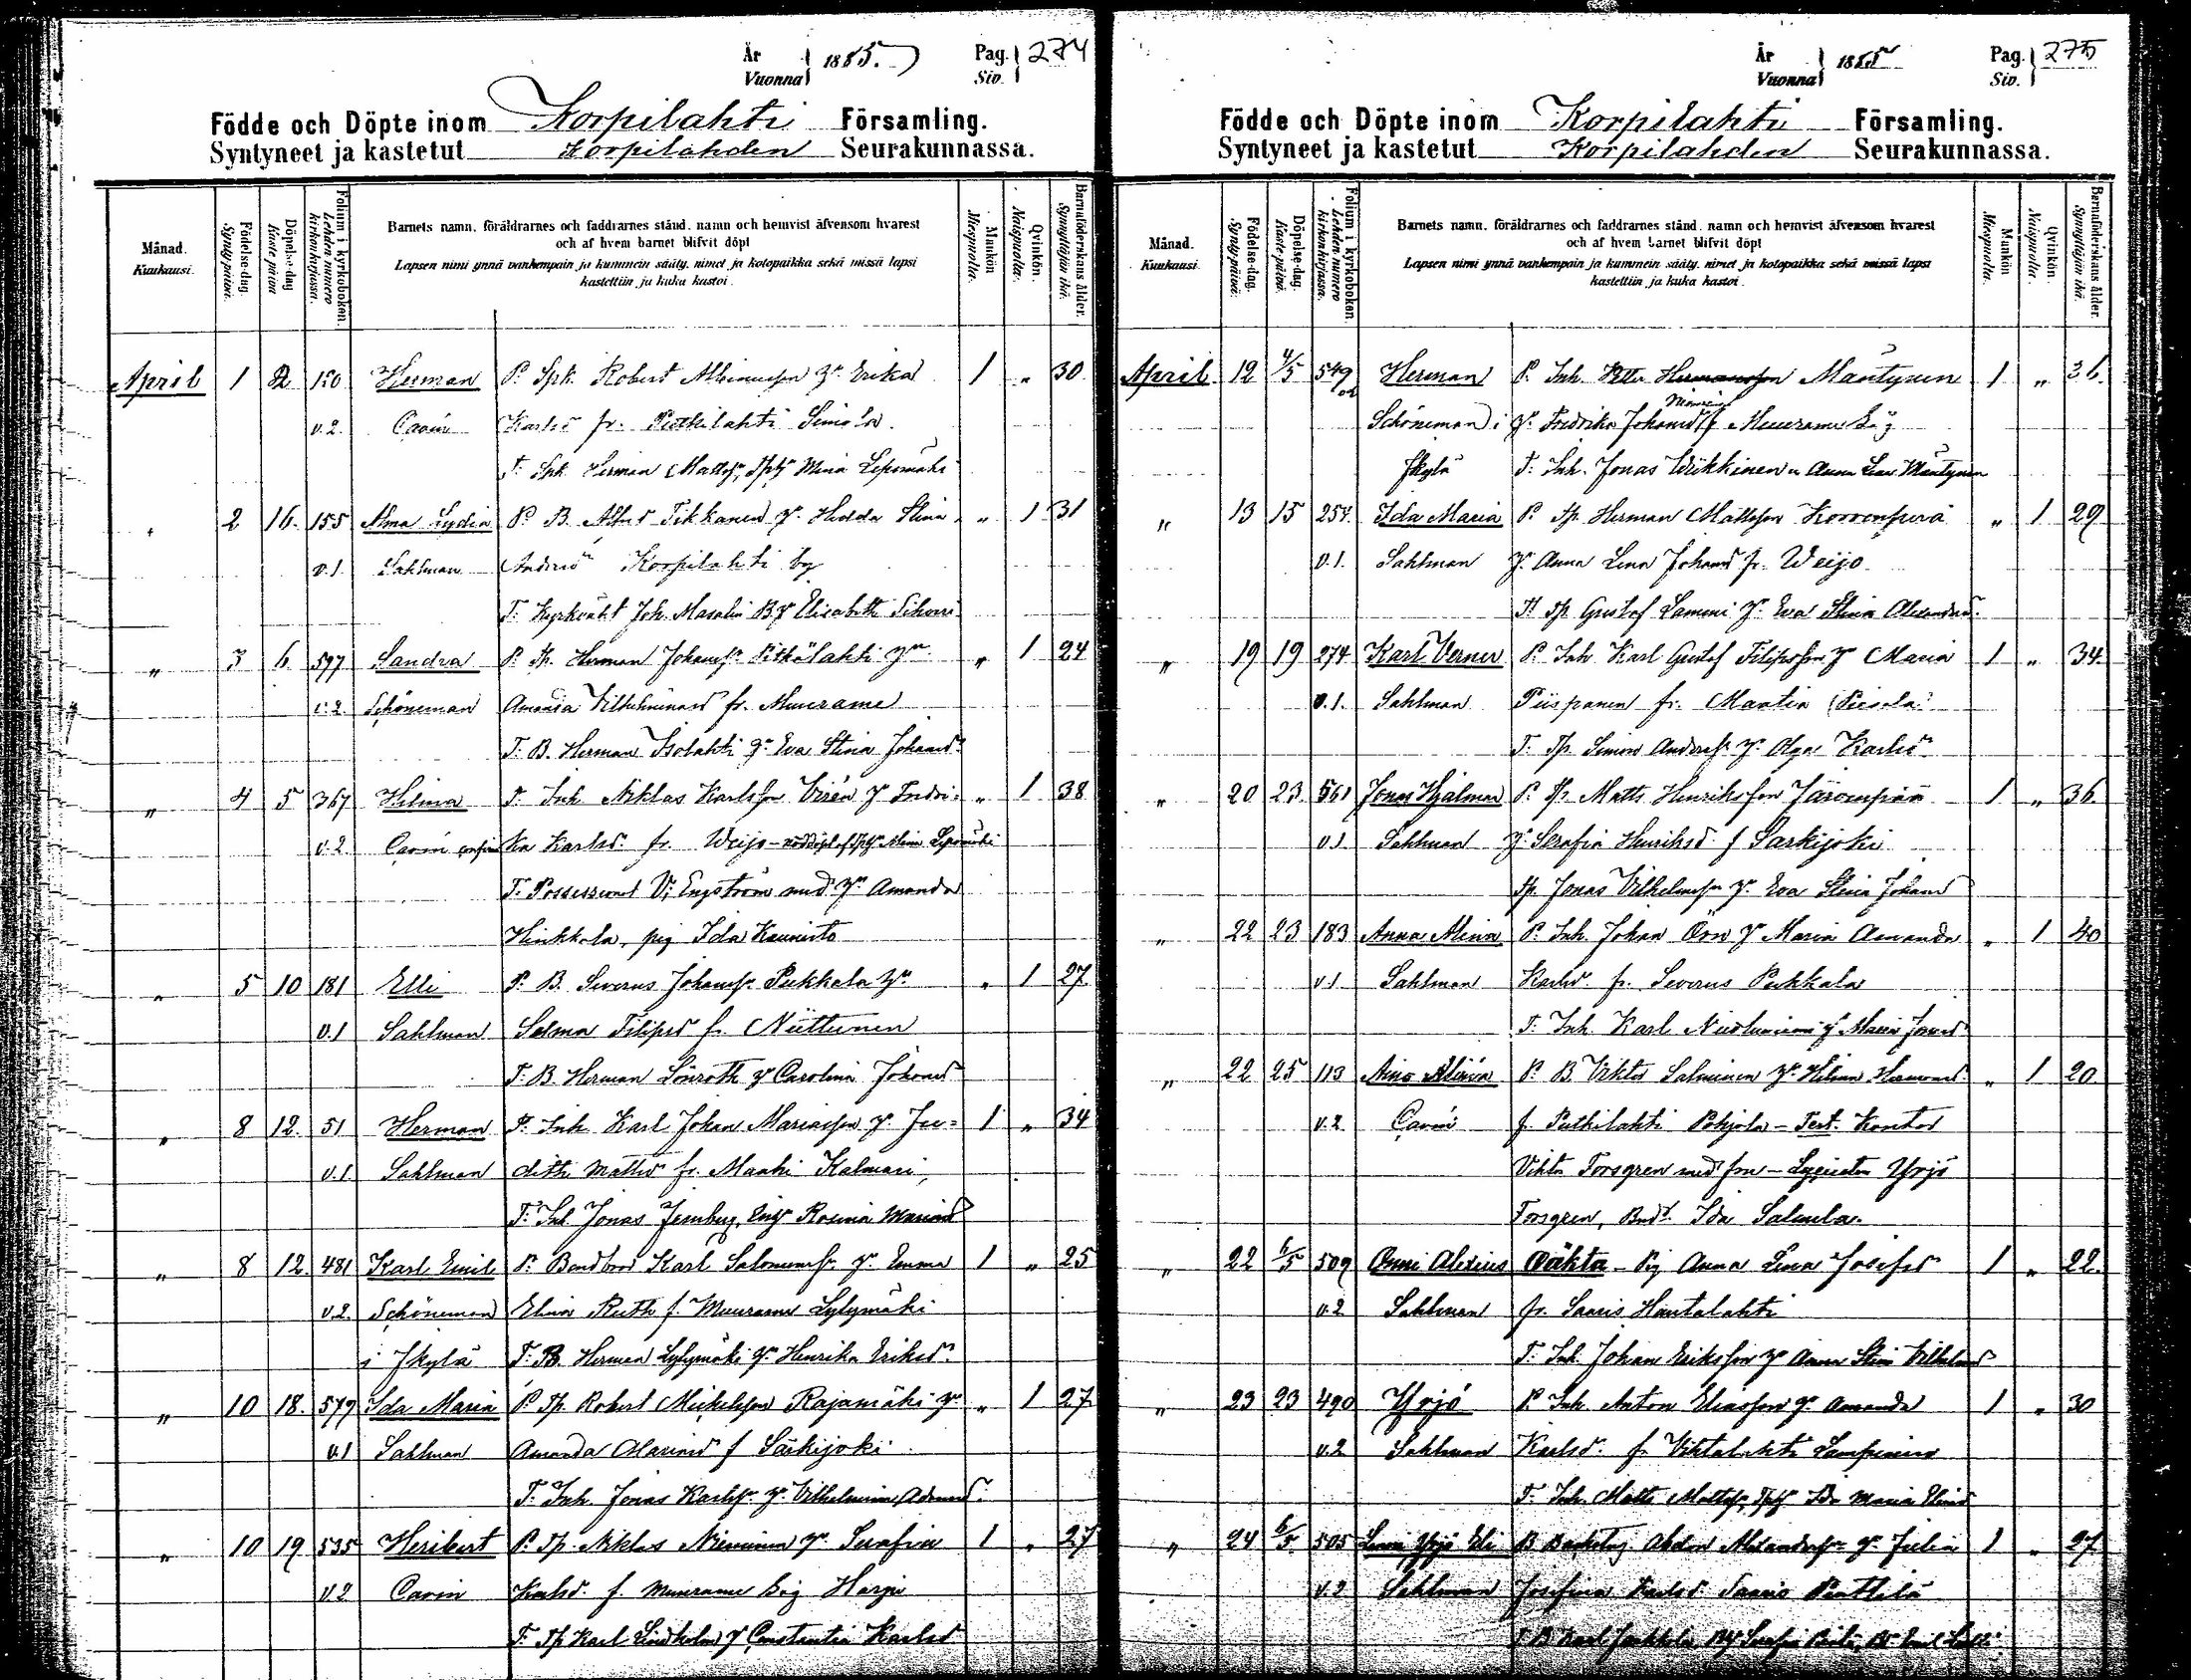 År Vuonna 1885. Pag. Siv. 274
Födde och Döpte inom Korpilahti Församling.
Syntyneet ja kastetut Korpilahden Seurakunnassa.
Månad. Kuukausi.
Födelse-dag. Synty-päivä.
Döpelse-dag Kaste päivä
Folium i kyrkoboken. Lehden numero kirkonkirjassa.
Barnets namn, föräldrarnes och faddrarnes stånd, namn och hemvist äfvensom hvarest
och af hvem barnet blifvit döpt
Lapsen nimi ynnä vanhempain ja kummein sääty, nimet ja kotopaikka sekä missä lapsi
kastettiin ja kuka kastoi.
Mankön Miespuolta.
Qvinkön. Naispuolta.
Barnaföderskans ålder. Synnyttäjän ikä.
April 1 2 150 Herman P. Spk. Robert Albinusson Hr Erika 1 " 30
v.2. Cavén Karlsd fr. Putkilahti Simola
F. Spk Herman Mattss, Mina Lepomäki
2 16. 155 Alma Lydia P. B. Alfred Tikkanen Hr Hulda Stina " 1 31
v.1 Sahlman Andersd Korpilahti by
F. Kyrkvakt Joh. Masalin Elisabeth Sihvon
" 3 6 597 Sandra P. Tp. Herman Johanss. Pitkälahti Hu " 1 24
v.2 Schöneman Amanda Vilhelminasd fr. Muurame
F. B. Herman Isolahti Hu Eva Stina Johansd
" 4 5 367 Hilma P. Inh Niklas Karlsson Virén H Fredri- " 1 38
v.2 Cavén ka Karlsd. fr. Weijo - nöddöpt af Mina Lepomäki
F. Possessionat V. Engström med Hu Amanda
Hinkkala, pig Ida Kaunisto
" 5 10 181 Elli P. B. Severus Johanss. Pukkala Hu " 1 27
v.1 Sahlman Selma Filipsd fr. Niittunen
F. B. Herman Lönroth H Carolina Johansd
" 8 12. 51 Herman P. Inh Karl Johan Mariasson H. Ju= 1 " 34
v.1. Sahlman dith Mattsd fr. Maahi Kalmari,
F. Inh Jonas Jernberg, Rosina Mariasd
" 8 12 481 Karl Emil P. Karl Salomonss. H. Emma 1 " 25
v.2. Schöneman Elina Ruth f. Muurame Lylymäki
i Jkylä F. B. Herman Lylymäki Hu Henrika Eriksd
" 10 18. 579 Ida Maria P. Tp. Robert Mickelsson Rajamäki Hu " 1 27
v.1 Sahlman Amanda Mariasd f Särkijoki
F. Inh. Jonas Karlss. H. Vilhelmina Adamsd.
" 10 19 535 Heribert P. Tp. Niklas Nieminen Hu Serafia 1 " 27
v.2 Cavén Karlsd. f. Muurame Harju
F. Tp Karl Lindholm H Constantia Karlsd
År Vuonna 1885 Pag. Siv. 275
Födde och Döpte inom Korpilahti Församling.
Syntyneet ja kastetut Korpilahden Seurakunnassa.
Månad. Kuukausi
Födelse-dag. Synty-päivä.
Döpelse-dag. Kaste-päivä.
Folium i kyrkoboken. Lehden numero kirkonkirjassa.
Barnets namn, föräldrarnes och faddrarnes stånd, namn och hemvist äfvensom hvarest
och af hvem barnet blifvit döpt
Lapsen nimi ynnä vanhempain ja kummein sääty, nimet ja kotopaikka sekä missä lapsi
kastettiin ja kuka kastoi.
Mankön Miespuolta.
Qvinkön. Naispuolta.
Barnaföderskans ålder. Synnyttäjän ikä.
April 12 4/5 549 Herman P. Inh. Petter Hermansson Mäntynen 1 " 36.
Schöneman i H. Fredrika Johansd f. Muurame
Jkylä F. Inh. Jonas Wiikkinen o Anna Lisa Mäntynen
" 13 15 257. Ida Maria P. Tp. Herman Mattsson Korvenperä " 1 29
v.1. Sahlman H. Anna Lena Johansd fr. Weijo
F. Tp. Gustaf Lammi H. Eva Stina Alexandersd.
" 19 19 274 Karl Verner P. Inh Karl Gustaf Filipsson H Maria 1 " 34.
v.1. Sahlman Piispanen fr. Maatia
F. Tp. Simon Anderss. H. Olga Karlsd
" 20 23. 561 Jonas Hjalmar P. Tp. Matts Henriksson Järvenpää 1 " 36.
v.1 Sahlman H. Serafia Henriksd f Särkijoki
Tp. Jonas Vilhelmss. H. Eva Stina Johansd
" 22 23 183 Anna Mina P. Inh. Johan Örn H Maria Amanda " 1 40
v.1 Sahlman Karlsd. fr. Severus Pukkala
F. Inh. Karl H Maria Jonasd
" 22 25 113 Aino Alina P. B. Viktor Salminen Hr. Hilma Hermansd. " 1 20
v.2 Cavén f. Putkilahti Pohjola - Test. Kantor
Viktor Forsgren med fru - Lyceisten Yrjö
Forsgren, Bndr. Ida Salmela.
" 22 6/5 509 Onni Alexius Oäkta - Pig Anna Lena Josefsd 1 " 22.
v.2 Sahlman fr. Saaris Hautalahti
F. Inh. Johan Eriksson H Anna Stina Vilhelmsd
" 23 23 490 Yrjö P. Inh. Anton Eliasson H. Amanda 1 " 30
v.2 Sahlman Karlsd. f. Vihtalahti Lampinen
F. Inh. Matts Mattss, Ida Maria Eliasd
" 24 6/5 505 Yrjö Eli H. Julia 1 " 27.
v.2 Sahlman Josefina Karlsd. Saaris Penttilä